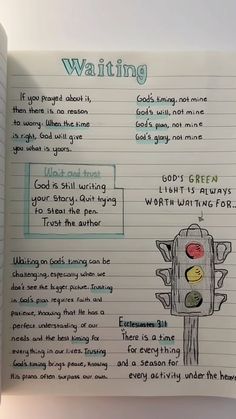 Waiting
If you prayed about it,
then there is no reason
to worry. When the time
is right, God will give
you what is yours.
God's timing, not mine
God's will, not mine
God's plan, not mine
God's glory, not mine
Wait and trust
God is still writing
your story. Quit trying
to steal the pen
Trust the author
GOD'S GREEN
LIGHT IS ALWAYS
WORTH WAITING FOR..
Waiting on God's timing can be
challenging, especially when we
don't see the bigger picture. Trusting
in God's plan requires faith and
patience, knowing that He has a
perfect understanding of our
needs and the best timing for
everything in our lives. Trusting
God's timing brings peace, knowing
His plans often surpass our own.
Ecclesiastes 3:1
There is a time
for everything
and a season for
every activity under the heavens